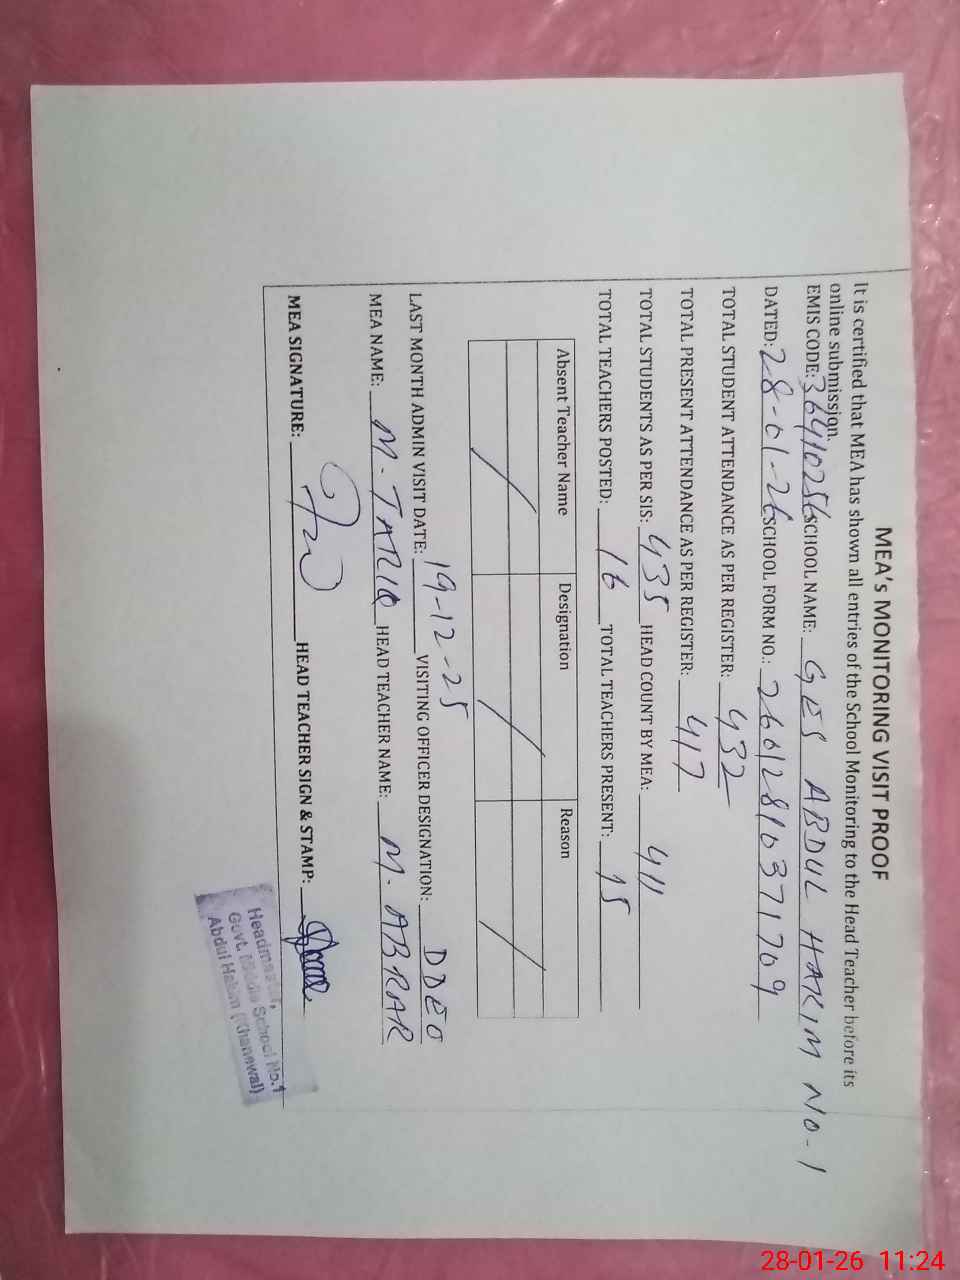 MEA's MONITORING VISIT PROOF
It is certified that MEA has shown all entries of the School Monitoring to the Head Teacher before its
online submission.
EMIS CODE: 36410256 SCHOOL NAME: GES ABDUL HAKIM NO-1
DATED: 28-01-26 SCHOOL FORM NO.: 2601281037 1709
TOTAL STUDENT ATTENDANCE AS PER REGISTER: 432
TOTAL PRESENT ATTENDANCE AS PER REGISTER: 417
TOTAL STUDENTS AS PER SIS: 435 HEAD COUNT BY MEA: 411
TOTAL TEACHERS POSTED: 16 TOTAL TEACHERS PRESENT: 15
Absent Teacher Name Designation Reason
LAST MONTH ADMIN VISIT DATE: 19-12-25 VISITING OFFICER DESIGNATION: DDEO
MEA NAME: M. TARIQ HEAD TEACHER NAME: M. ABRAR
MEA SIGNATURE: HEAD TEACHER SIGN & STAMP:
Headmaster,
Govt. Middle School No.1
Abdul Hakim (Khanewal)
28-01-26 11:24